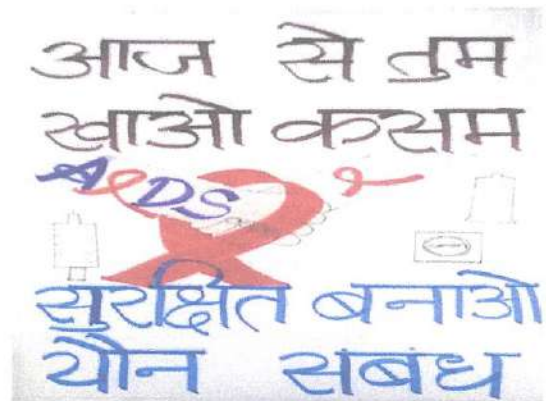 आज से तुम
खाओ कसम
AIDS
सुरक्षित बनाओ
यौन सबंध